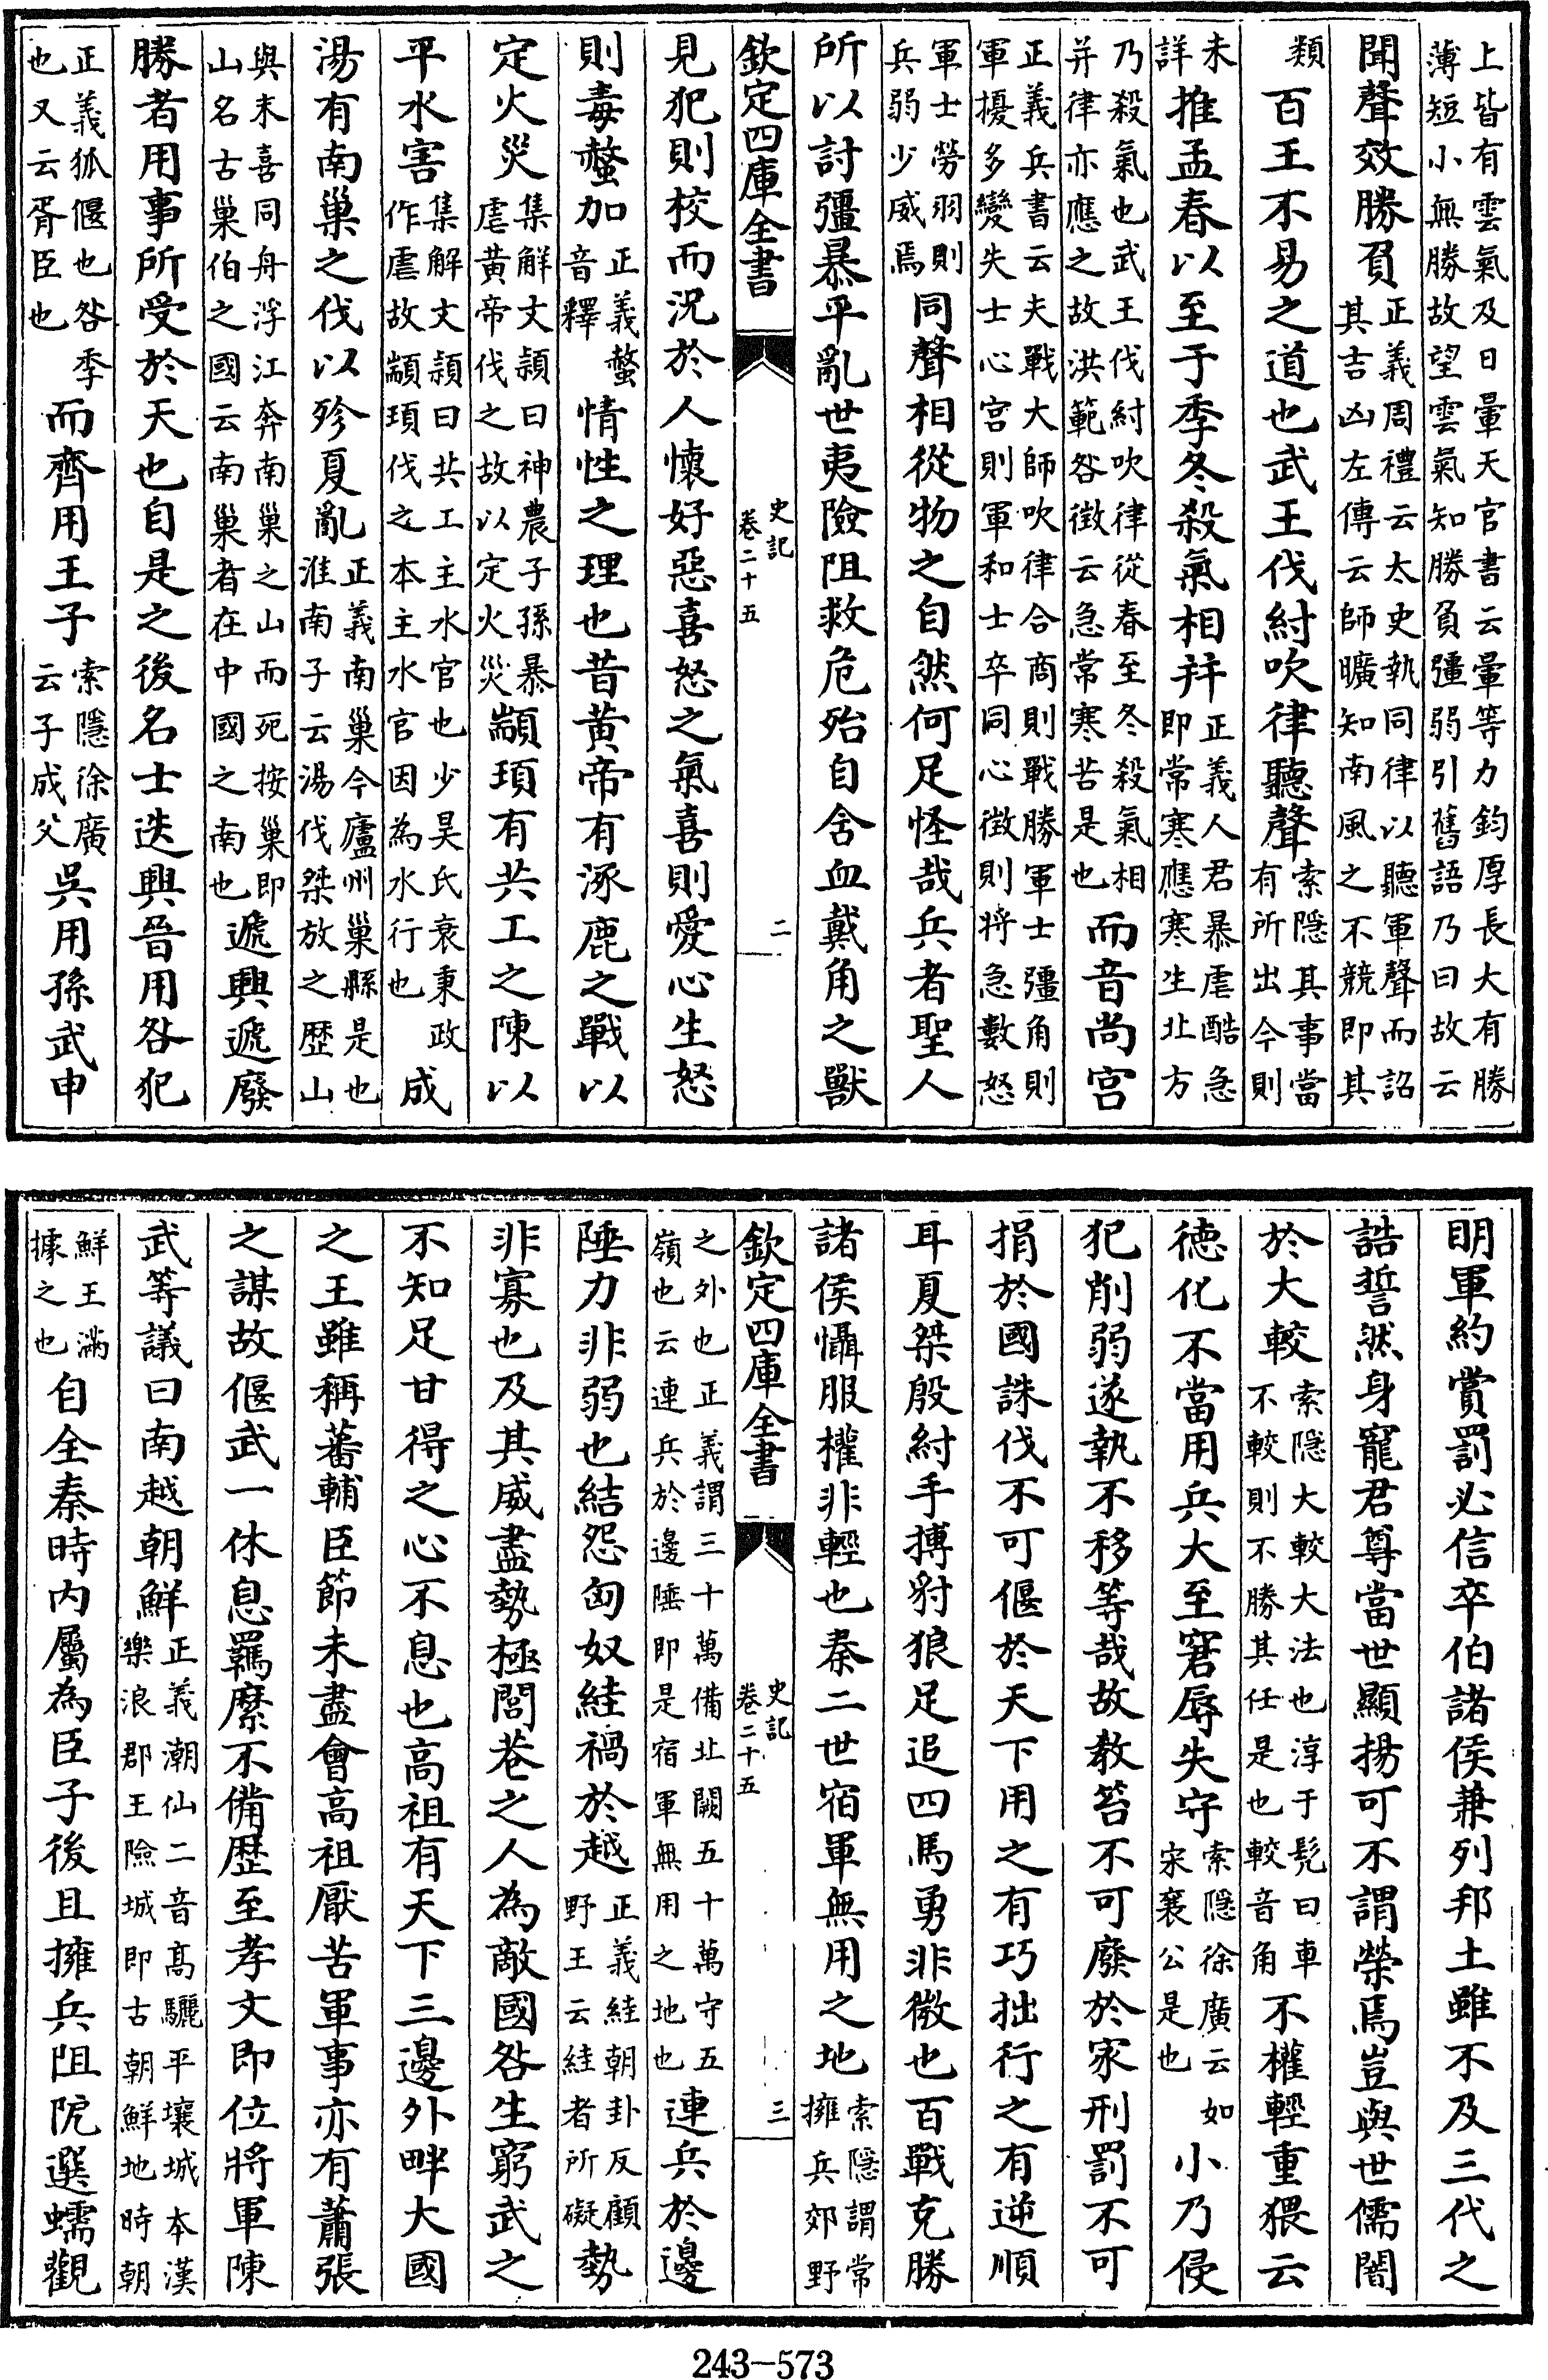 上皆有雲氣及日暈天官書云暈等力鈞厚長大有勝
薄短小無勝故望雲氣知勝負彊弱引舊語乃曰故云
聞聲效勝負正義周禮云太史執同律以聽軍聲而詔其吉凶左傳云師曠知南風之不競即其
類百王不易之道也武王伐紂吹律聽聲索隱其事當有所出今則
未詳推孟春以至于季冬殺氣相并正義人君暴虐酷急即常寒應寒生北方
乃殺氣也武王伐紂吹律從春至冬殺氣相并律亦應之故洪範咎徵云急常寒苦是也而音尚宮
正義兵書云夫戰大師吹律合商則戰勝軍士彊角則
軍擾多變失士心宮則軍和士卒同心徵則將急數怒
軍士勞羽則兵弱少威焉同聲相從物之自然何足怪哉兵者聖人
所以討彊暴平亂世夷險阻救危殆自含血戴角之獸
欽定四庫全書 史記卷二十五 二
見犯則校而況於人懷好惡喜怒之氣喜則愛心生怒
則毒螫加正義螫音釋情性之理也昔黃帝有涿鹿之戰以
定火災集解文頴曰神農子孫暴虐黃帝伐之故以定火災顓頊有共工之陳以
平水害集解文頴曰共工主水官也少昊氏衰秉政作虐故顓頊伐之本主水官因為水行也成
湯有南巢之伐以殄夏亂正義南巢今廬州巢縣是也淮南子云湯伐桀放之歴山
與末喜同舟浮江奔南巢之山而死按巢即山名古巢伯之國云南巢者在中國之南也遞興遞廢
勝者用事所受於天也自是之後名士迭興晉用咎犯
正義狐偃也咎季也又云胥臣也而齊用王子索隱徐廣云子成父吳用孫武申
明軍約賞罰必信卒伯諸侯兼列邦土雖不及三代之
誥誓然身寵君尊當世顯揚可不謂榮焉豈與世儒闇
於大較索隱大較大法也淳于髡曰車不較則不勝其任是也較音角不權輕重猥云
德化不當用兵大至窘辱失守索隱徐廣云如宋襄公是也小乃侵
犯削弱遂執不移等哉故教笞不可廢於家刑罰不可
捐於國誅伐不可偃於天下用之有巧拙行之有逆順
耳夏桀殷紂手搏豺狼足追四馬勇非微也百戰克勝
諸侯懾服權非輕也秦二世宿軍無用之地索隱謂常擁兵郊野
欽定四庫全書 史記卷二十五 三
之外也正義謂三十萬備北闕五十萬守五嶺也云連兵於邊陲即是宿軍無用之地也連兵於邊
陲力非弱也結怨匈奴絓禍於越正義絓朝卦反顧野王云絓者所礙勢
非寡也及其威盡勢極閭巷之人為敵國咎生窮武之
不知足甘得之心不息也高祖有天下三邊外畔大國
之王雖稱蕃輔臣節未盡會高祖厭苦軍事亦有蕭張
之謀故偃武一休息羈縻不備歴至孝文即位將軍陳
武等議曰南越朝鮮正義潮仙二音高驪平壤城本漢樂浪郡王險城即古朝鮮地時朝
鮮王滿據之也自全秦時內屬為臣子後且擁兵阻阸選蠕觀
243-573